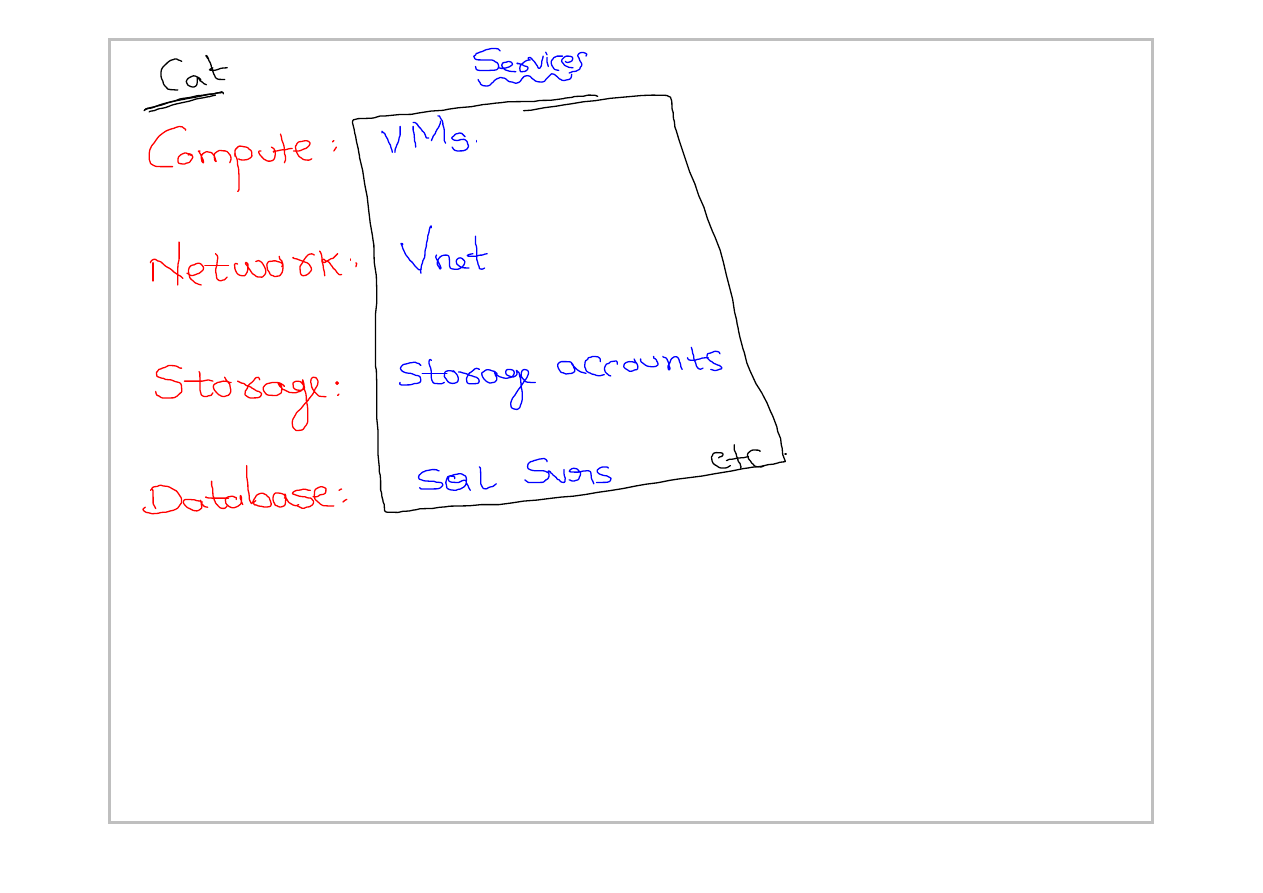 Cat Services
Compute: VMs.
Network: Vnet
Storage: Storage accounts
Database: SQL Svrs etc